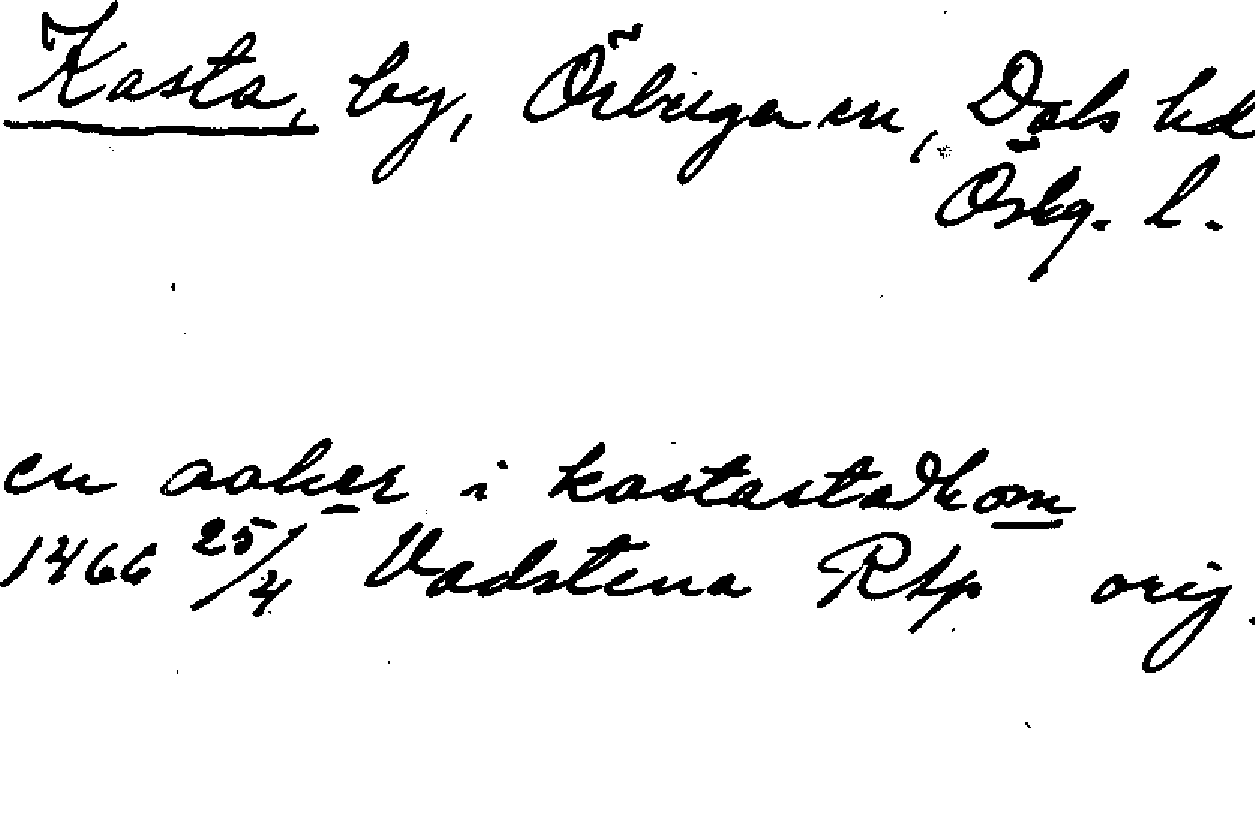 Kasta, by, Örberga sn, Dals hd
Östg. l.
en aaker i kastastadhom
1466 25/4 Vadstena RAp orig.